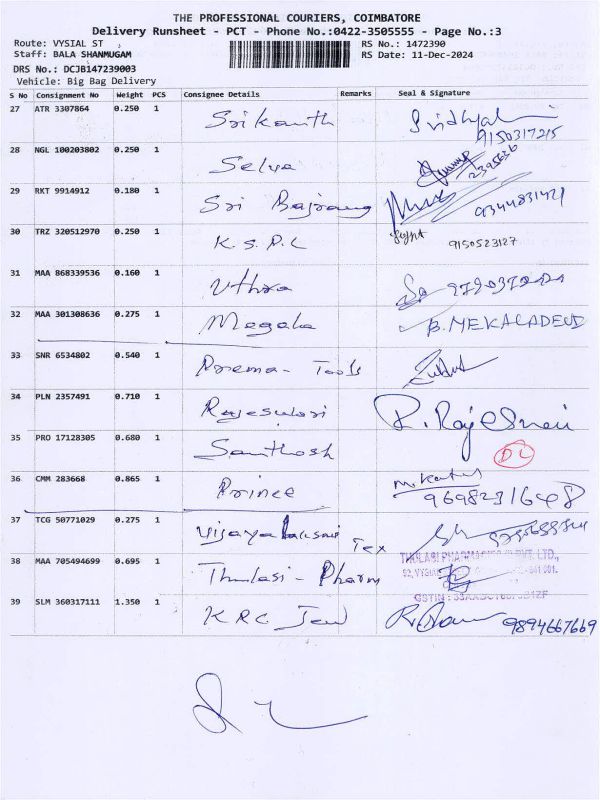 THE PROFESSIONAL COURIERS, COIMBATORE
Delivery Runsheet - PCT - Phone No.:0422-3505555 - Page No.:3
Route: VYSIAL ST RS No.: 1472390
Staff: BALA SHANMUGAM RS Date: 11-Dec-2024
DRS No.: DCJB147239003
Vehicle: Big Bag Delivery
S No Consignment No Weight PCS Consignee Details Remarks Seal & Signature
27 ATR 3307864 0.250 1 Srikanth
9150317215
28 NGL 100203802 0.250 1 Selva
29 RKT 9914912 0.180 1 Sri Bajrang 9344831421
30 TRZ 320512970 0.250 1 K.S.P.L 9150523127
31 MAA 868339536 0.160 1 Uthra
32 MAA 301308636 0.275 1 Megala B. MEKALADEVI
33 SNR 6534802 0.540 1 Prema - Tools
34 PLN 2357491 0.710 1 Rajeswari R. Rajeswari
35 PRO 17128305 0.680 1 Santhosh DL
36 CMM 283668 0.865 1 Prince
9698231648
37 TCG 50771029 0.275 1 Vijayalaksmi Tex
38 MAA 705494699 0.695 1 Thulasi - Pharm
39 SLM 360317111 1.350 1 KRC Jew 9894667669